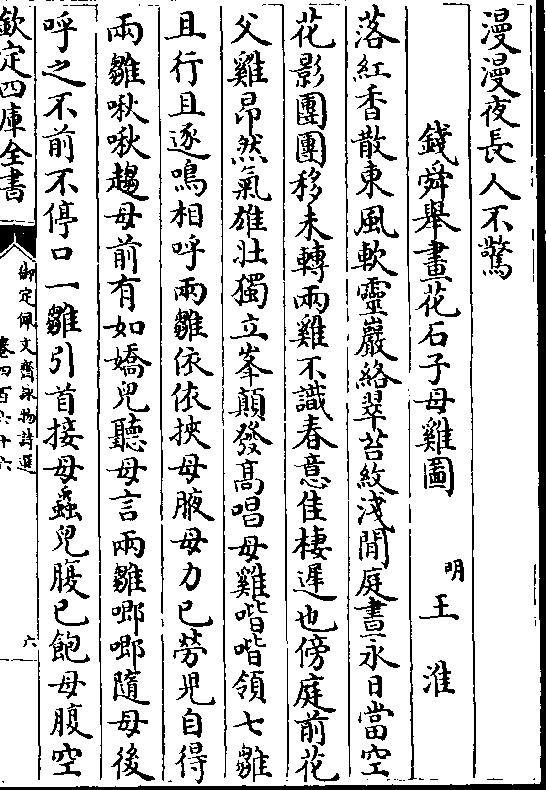 漫漫夜長人不驚
錢舜舉畫花石子母雞圖
明王淮
落紅香散東風軟靈巖絡翠苔紋淺閒庭晝永日當空
花影團團移未轉兩雞不識春意佳棲遲也傍庭前花
父雞昂然氣雄壯獨立峯顛發高唱母雞喈喈領七雛
且行且逐鳴相呼兩雛依依挾母腋母力已勞兒自得
兩雛啾啾趨母前有如嬌兒聽母言兩雛唧唧隨母後
呼之不前不停口一雛引首接母蟲兒腹已飽母腹空
欽定四庫全書
御定佩文齋詠物詩選
卷四百六十六
六